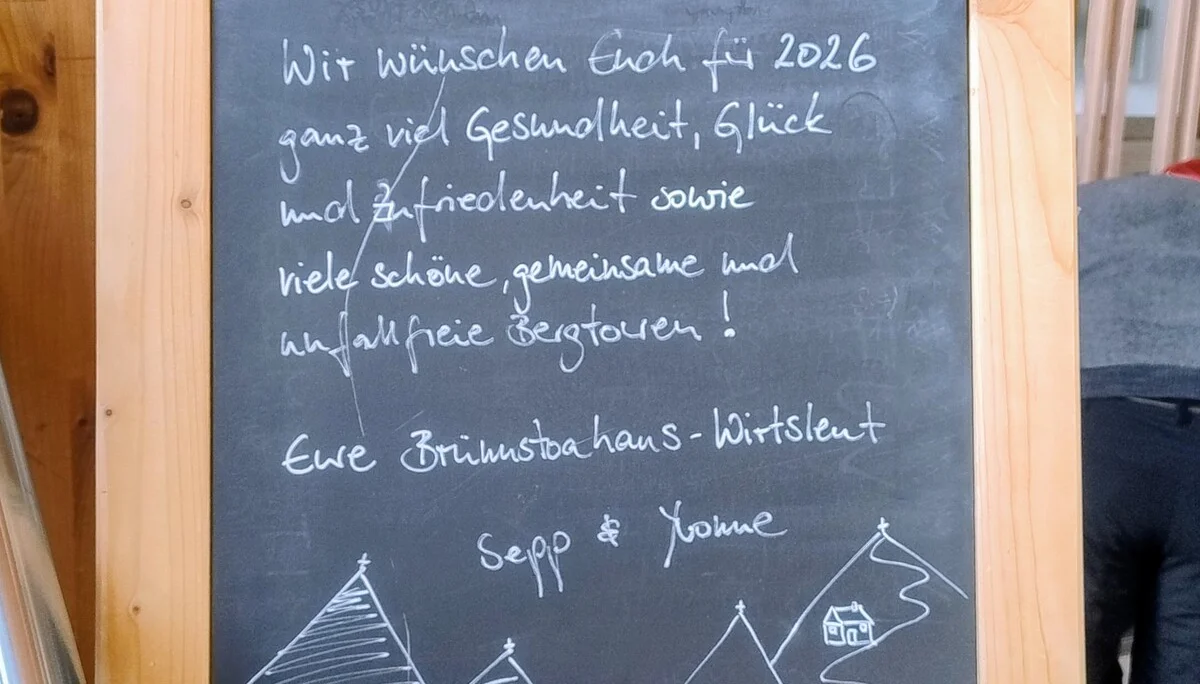 Wir wünschen Euch für 2026
ganz viel Gesundheit, Glück
und Zufriedenheit sowie
viele schöne, gemeinsame und
unfallfreie Bergtouren!
Eure Brünnstoahaus-Wirtsleut
Sepp & Yvonne